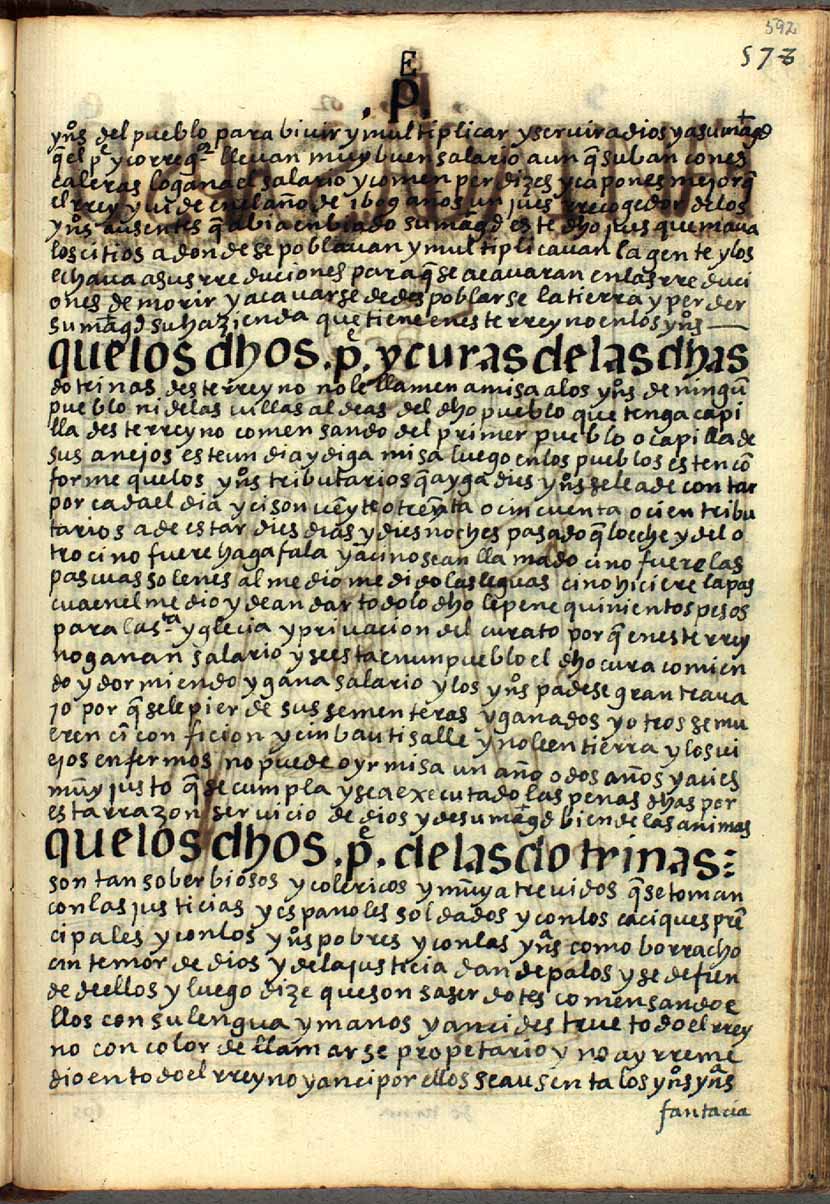 592
573
.pᵉ.
yn̄os del pueblo para bivir y multiplicar y servir a dios y a su mag̃d
q̄ el pᵉ y correg.or llevan muy buen salario aun q̄ suban con es
caleras lo gana el salario y comen perdizes y capones mejor q̄
el rrey y vi de en el año de 1609 años un jues rrecogedor de los
yn̄os ausentes q̄ abia enbiado su mag̃d este dho jues quemava
los citios adonde se poblavan y multiplicavan la gente y los
echava a sus rreduciones para q̄ se acavaran en las rreduci
ones de morir y acavarse de despoblarse la tierra y perder
su mag̃d su hazienda que tiene en este rreyno en los yn̄os
que los dhos .pᵉ. y curas de las dhas
dotrinas deste rreyno no le llamen a misa a los yn̄os de ningū
pueblo ni de las villas aldeas del dho pueblo que tenga capi
lla deste rreyno comensando del primer pueblo o capilla de
sus anejos este un dia y diga misa luego en los pueblos esten cō
forme que los yn̄os tributarios q̄ ayga dies yn̄os se le a de contar
por cada el dia y ci son veynte o trenta o cincuenta o cien tribu
tarios a de estar dies dias y dies noches pasado q̄ lo eche y del o
tro ci no fuere haga fala y aci no sean llamado ci no fuere las
pascuas solenes al medio medido las leguas ci no hiciere la pas
cua en el medio y de andar todo lo dho le pene quinientos pesos
para la s.ta yglecia y privacion del curato por q̄ en este rrey
no ganan salario y se esta en un pueblo el dho cura comien
do y dormiendo y gana salario y los yn̄os padese gran trava
jo por q̄ se le pierde sus sementeras y ganados y otros se mu
eren cī conficion y cin bautisalle y no le entierra y los vi
ejos enfermos no puede oyr misa un año o dos años y aci es
muy justo q̄ se cumpla y sea executado las penas dhas por
esta rrazon servicio de dios y de su mag̃d bien de las animas
que los dhos .pᵉ. de las dotrinas:
son tan soberbiosos y colericos y muy atrevidos q̄ se toman
con las justicias y españoles soldados y con los caciques prē
cipales y con los yn̄os pobres y con las yn̄as como borracho
cin temor de dios y de la justicia dan de palos y se defien
de de ellos y luego dize que son saserdotes comensando e
llos con su lengua y manos y anci destrue todo el rrey
no con color de llamarse propetario y no ay rreme
dio en todo el rreyno y anci por ellos se ausenta los yn̄os yn̄as
fantacia